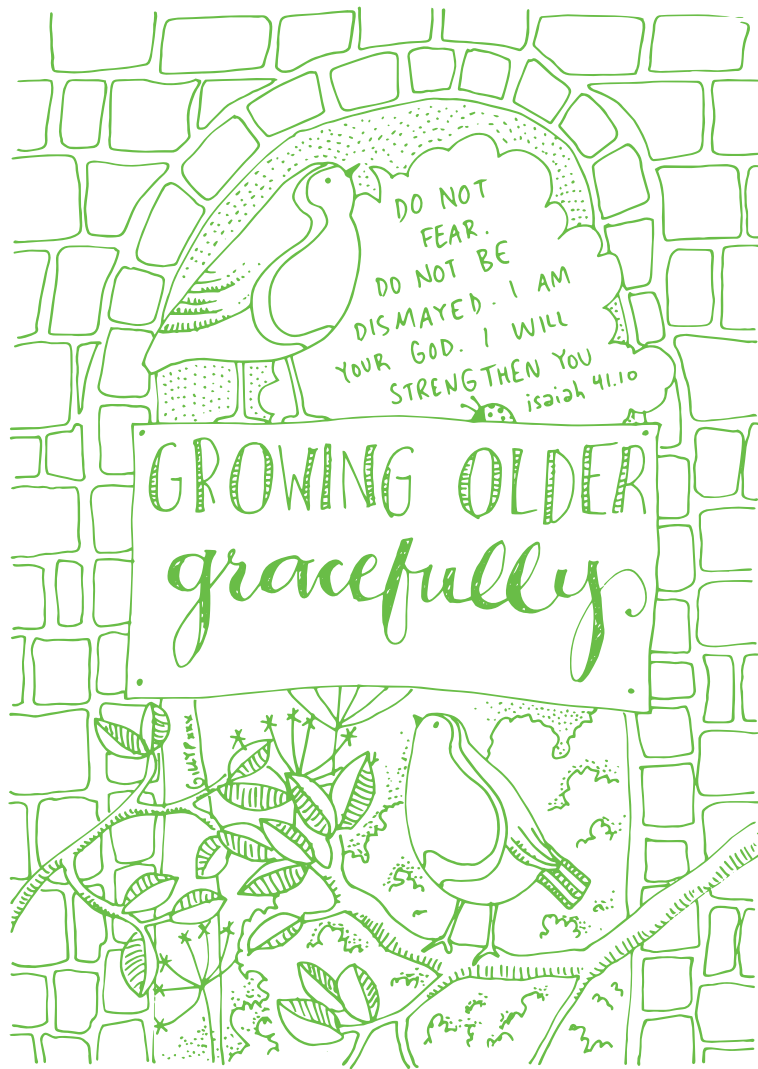 DO NOT
FEAR.
DO NOT BE
DISMAYED. I AM
YOUR GOD. I WILL
STRENGTHEN YOU
isaiah 41.10
GROWING OLDER
gracefully
GILLYPxxx